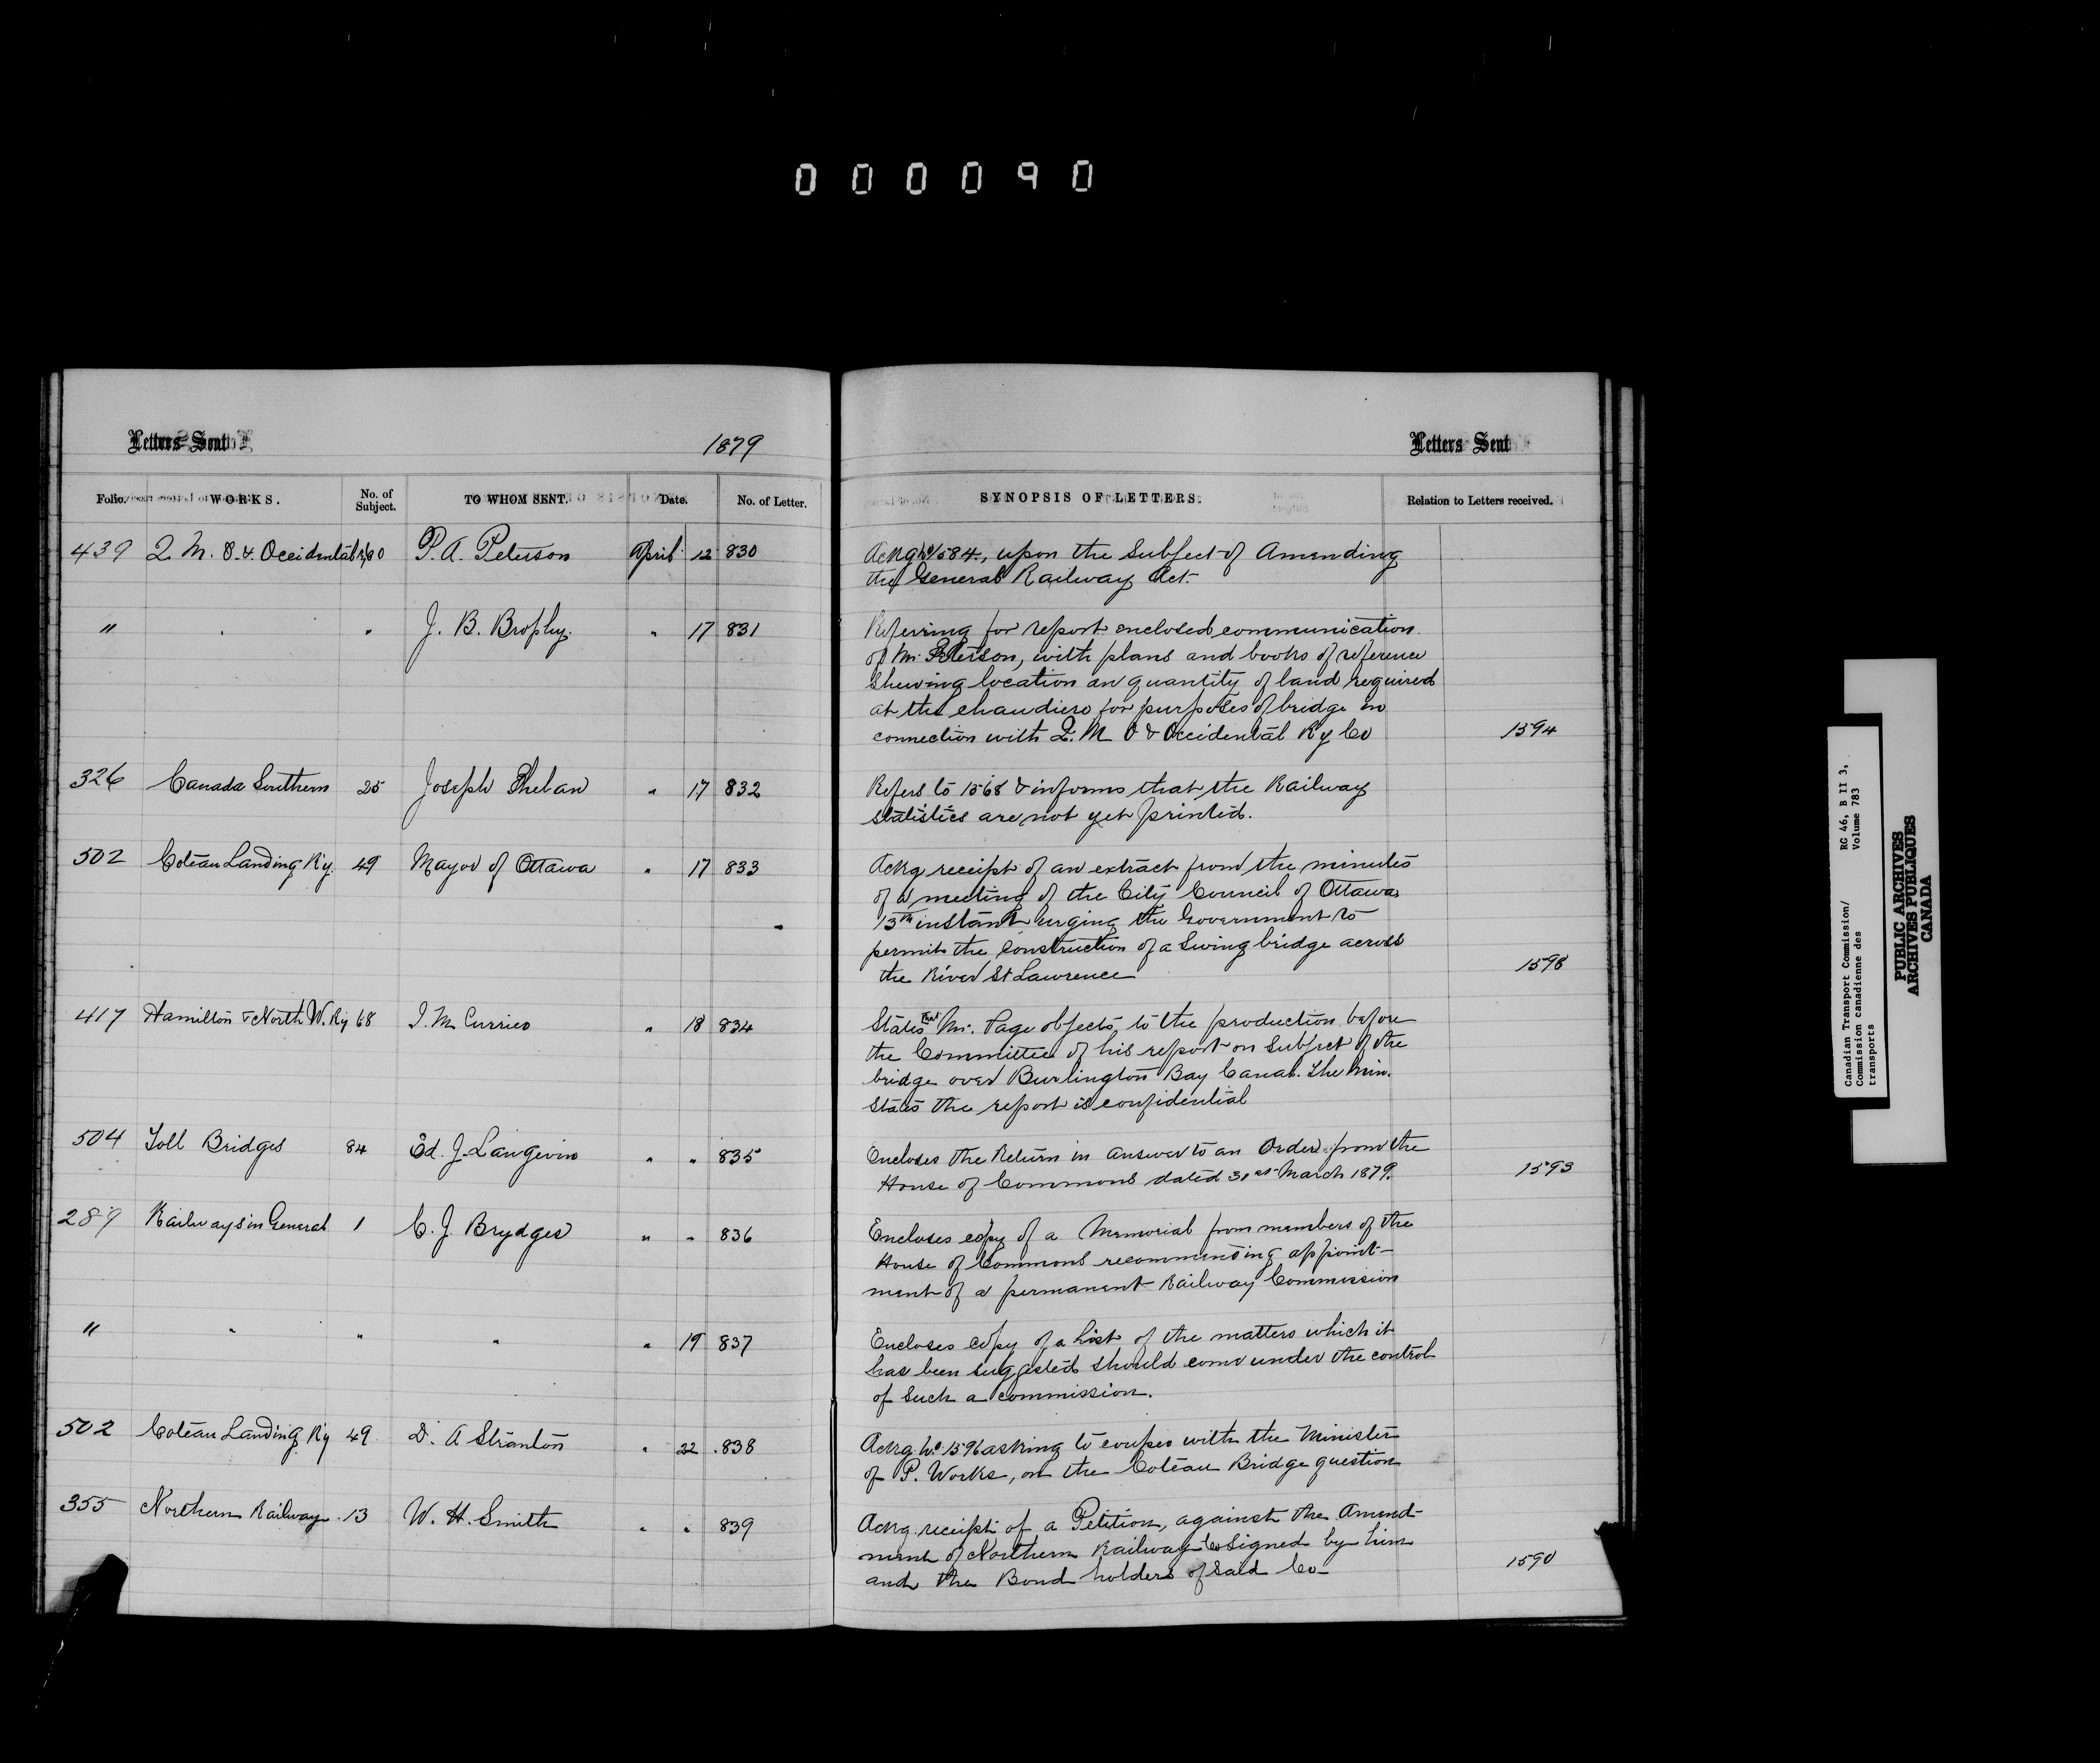 000090
Letters Sent
1879
Letters Sent
Folio. WORKS. No. of Subject. TO WHOM SENT. Date. No. of Letter. SYNOPSIS OF LETTERS. Relation to Letters received.
439 Q. M. O. & Occidental Ry 90 P. A. Peterson April 12 830 Ackg No 1584, upon the Subject of Amending
the General Railway Act.
" . " J. B. Brophy. " 17 831 Referring for report enclosed communication
of Mr. Peterson, with plans and books of reference
Shewing location an quantity of land required
at the chaudiere for purposes of bridge in
connection with Q. M O & Occidental Ry Co 1594
326 Canada Southern 25 Joseph Phelan " 17 832 Refers to 1568 & informs that the Railway
statistics are not yet printed.
502 Coteau Landing Ry. 49 Mayor of Ottawa " 17 833 Ackg receipt of an extract from the minutes
of a meeting of the City Council of Ottawa
15th instant urging the Government to
permit the construction of a Swing bridge across
the River St Lawrence 1598
417 Hamilton & North W. Ry 68 J. M. Currier " 18 834 States that Mr. Page objects to the production before
the Committee of his report on Subject of the
bridge over Burlington Bay Canal. The Min.
States the report is confidential
504 Toll Bridges 84 Ed. J. Langevin " " 835 Encloses the Return in answer to an Order from the
House of Commons dated 31st March 1879. 1593
289 Railways in General 1 C. J. Brydges " " 836 Encloses copy of a Memorial from members of the
House of Commons recommending appoint-
ment of a permanent Railway Commission
" " " " " 19 837 Encloses copy of a List of the matters which it
has been suggested should come under the control
of Such a commission.
502 Coteau Landing Ry 49 D. A Stranton " 22 838 Ackg No 1596 asking to confer with the Minister
of P. Works, on the Coteau Bridge question
355 Northern Railway 13 W. H. Smith " " 839 Ackg receipt of a Petition, against the Amend-
ment of Northern Railway Co Signed by him
and the Bond holders of Said Co 1590
Canadian Transport Commission/ RG 46, B II 3,
Commission canadienne des Volume 783
transports
PUBLIC ARCHIVES
ARCHIVES PUBLIQUES
CANADA